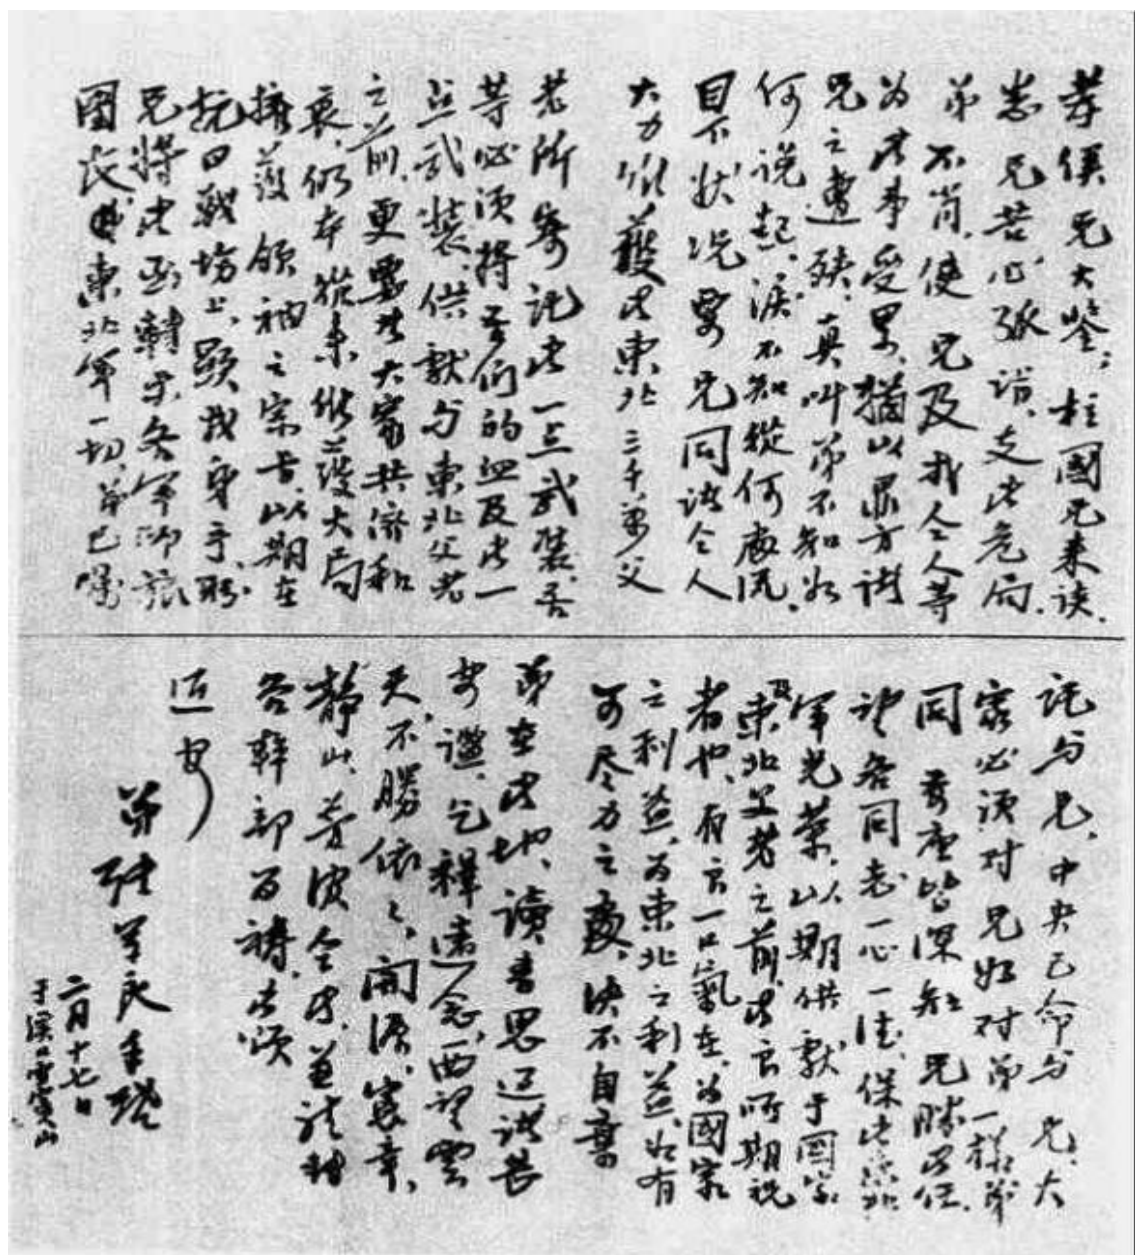 孝侯兄大鉴：柱國兄来谈，
悉兄苦心孤诣，支此危局，
弟不肖，使兄及我仝人等
为此事受累，犹以鼎方諸
兄之遭殃，真叫弟不知如
何说起，泪不知從何处流。
目下状况要兄同諸仝人
大力维护此東北三千万父
老所寄託此一点武装，吾
等必须将吾们的血及此一
点武装，供献与東北父老
之前，更要者大家共济和
衷，仍本从来维护大局
拥护领袖之宗旨，以期在
抗日戰場上，顕我身手，盼
兄将此函转示各军师旅
團長，東北军一切，弟已嘱
託与兄，中央已命与兄，大
家必须对兄如对弟一样，弟
同委座皆深知兄勝此任，
望各同志一心一德，保此东北
军光荣，以期供献于國家
及東北父老之前，此良所期祝
者也，有良一口氣在，为國家
之利益，为東北之利益，如有
可尽力之处，决不自棄
弟在此地，讀書思过，諸甚
安谧，乞释远念，西望云
天，不勝依依，開源、宪章，
静山、芳波仝此，并请转
各幹部为祷，此頌
近安
弟張学良手啓
二月十七日
于溪口雪窦山